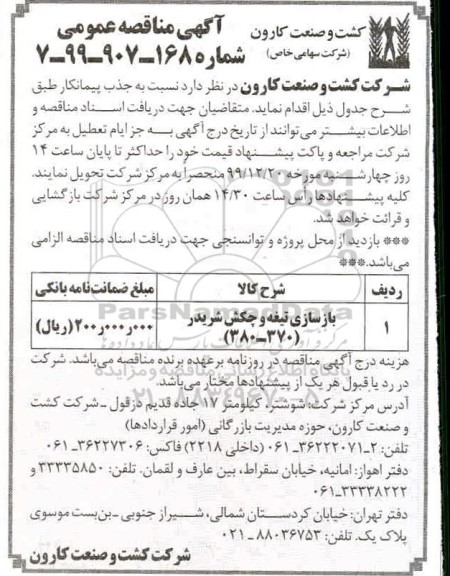 کشت و صنعت کارون
(شرکت سهامی خاص)
آگهی مناقصه عمومی
شماره ۱۶۸-۹۰۷-۹۹-۷
شرکت کشت و صنعت کارون در نظر دارد نسبت به جذب پیمانکار طبق
شرح جدول ذیل اقدام نماید. متقاضیان جهت دریافت اسناد مناقصه و
اطلاعات بیشتر می‌توانند از تاریخ درج آگهی به جز ایام تعطیل به مرکز
شرکت مراجعه و پاکت پیشنهاد قیمت خود را حداکثر تا پایان ساعت ۱۴
روز چهارشنبه مورخه ۹۹/۱۲/۲۰ منحصراً به مرکز شرکت تحویل نمایند.
کلیه پیشنهادها رأس ساعت ۱۴/۳۰ همان روز در مرکز شرکت بازگشایی
و قرائت خواهد شد.
*** بازدید از محل پروژه و توانسنجی جهت دریافت اسناد مناقصه الزامی
می‌باشد.***
ردیف شرح کالا مبلغ ضمانت‌نامه بانکی
۱ بازسازی تیغه و چکش شریدر (۳۷۰-۳۸۰) ۲۰۰ر۰۰۰ر۰۰۰ (ریال)
هزینه درج آگهی مناقصه در روزنامه بر عهده برنده مناقصه می‌باشد. شرکت
در رد یا قبول هر یک از پیشنهادها مختار می‌باشد.
آدرس مرکز شرکت: شوشتر، کیلومتر ۱۷ جاده قدیم دزفول - شرکت کشت
و صنعت کارون، حوزه مدیریت بازرگانی (امور قراردادها)
تلفن: ۲-۳۶۲۲۲۰۷۱-۰۶۱ (داخلی ۲۲۱۸) فاکس: ۳۶۲۲۷۳۰۶-۰۶۱
دفتر اهواز: امانیه، خیابان سقراط، بین عارف و لقمان. تلفن: ۳۳۳۳۵۸۵۰ و
۳۳۳۳۸۲۲۲-۰۶۱
دفتر تهران: خیابان کردستان شمالی، شیراز جنوبی - بن‌بست موسوی
پلاک یک. تلفن: ۸۸۰۳۶۷۵۳-۰۲۱
شرکت کشت و صنعت کارون
ParsNamadData
۰۲۱-۸۸۳۴۹۶۷۰-۵